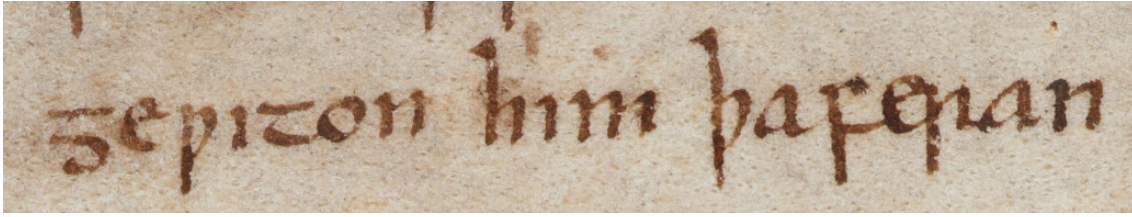 geƿiton him þa feran